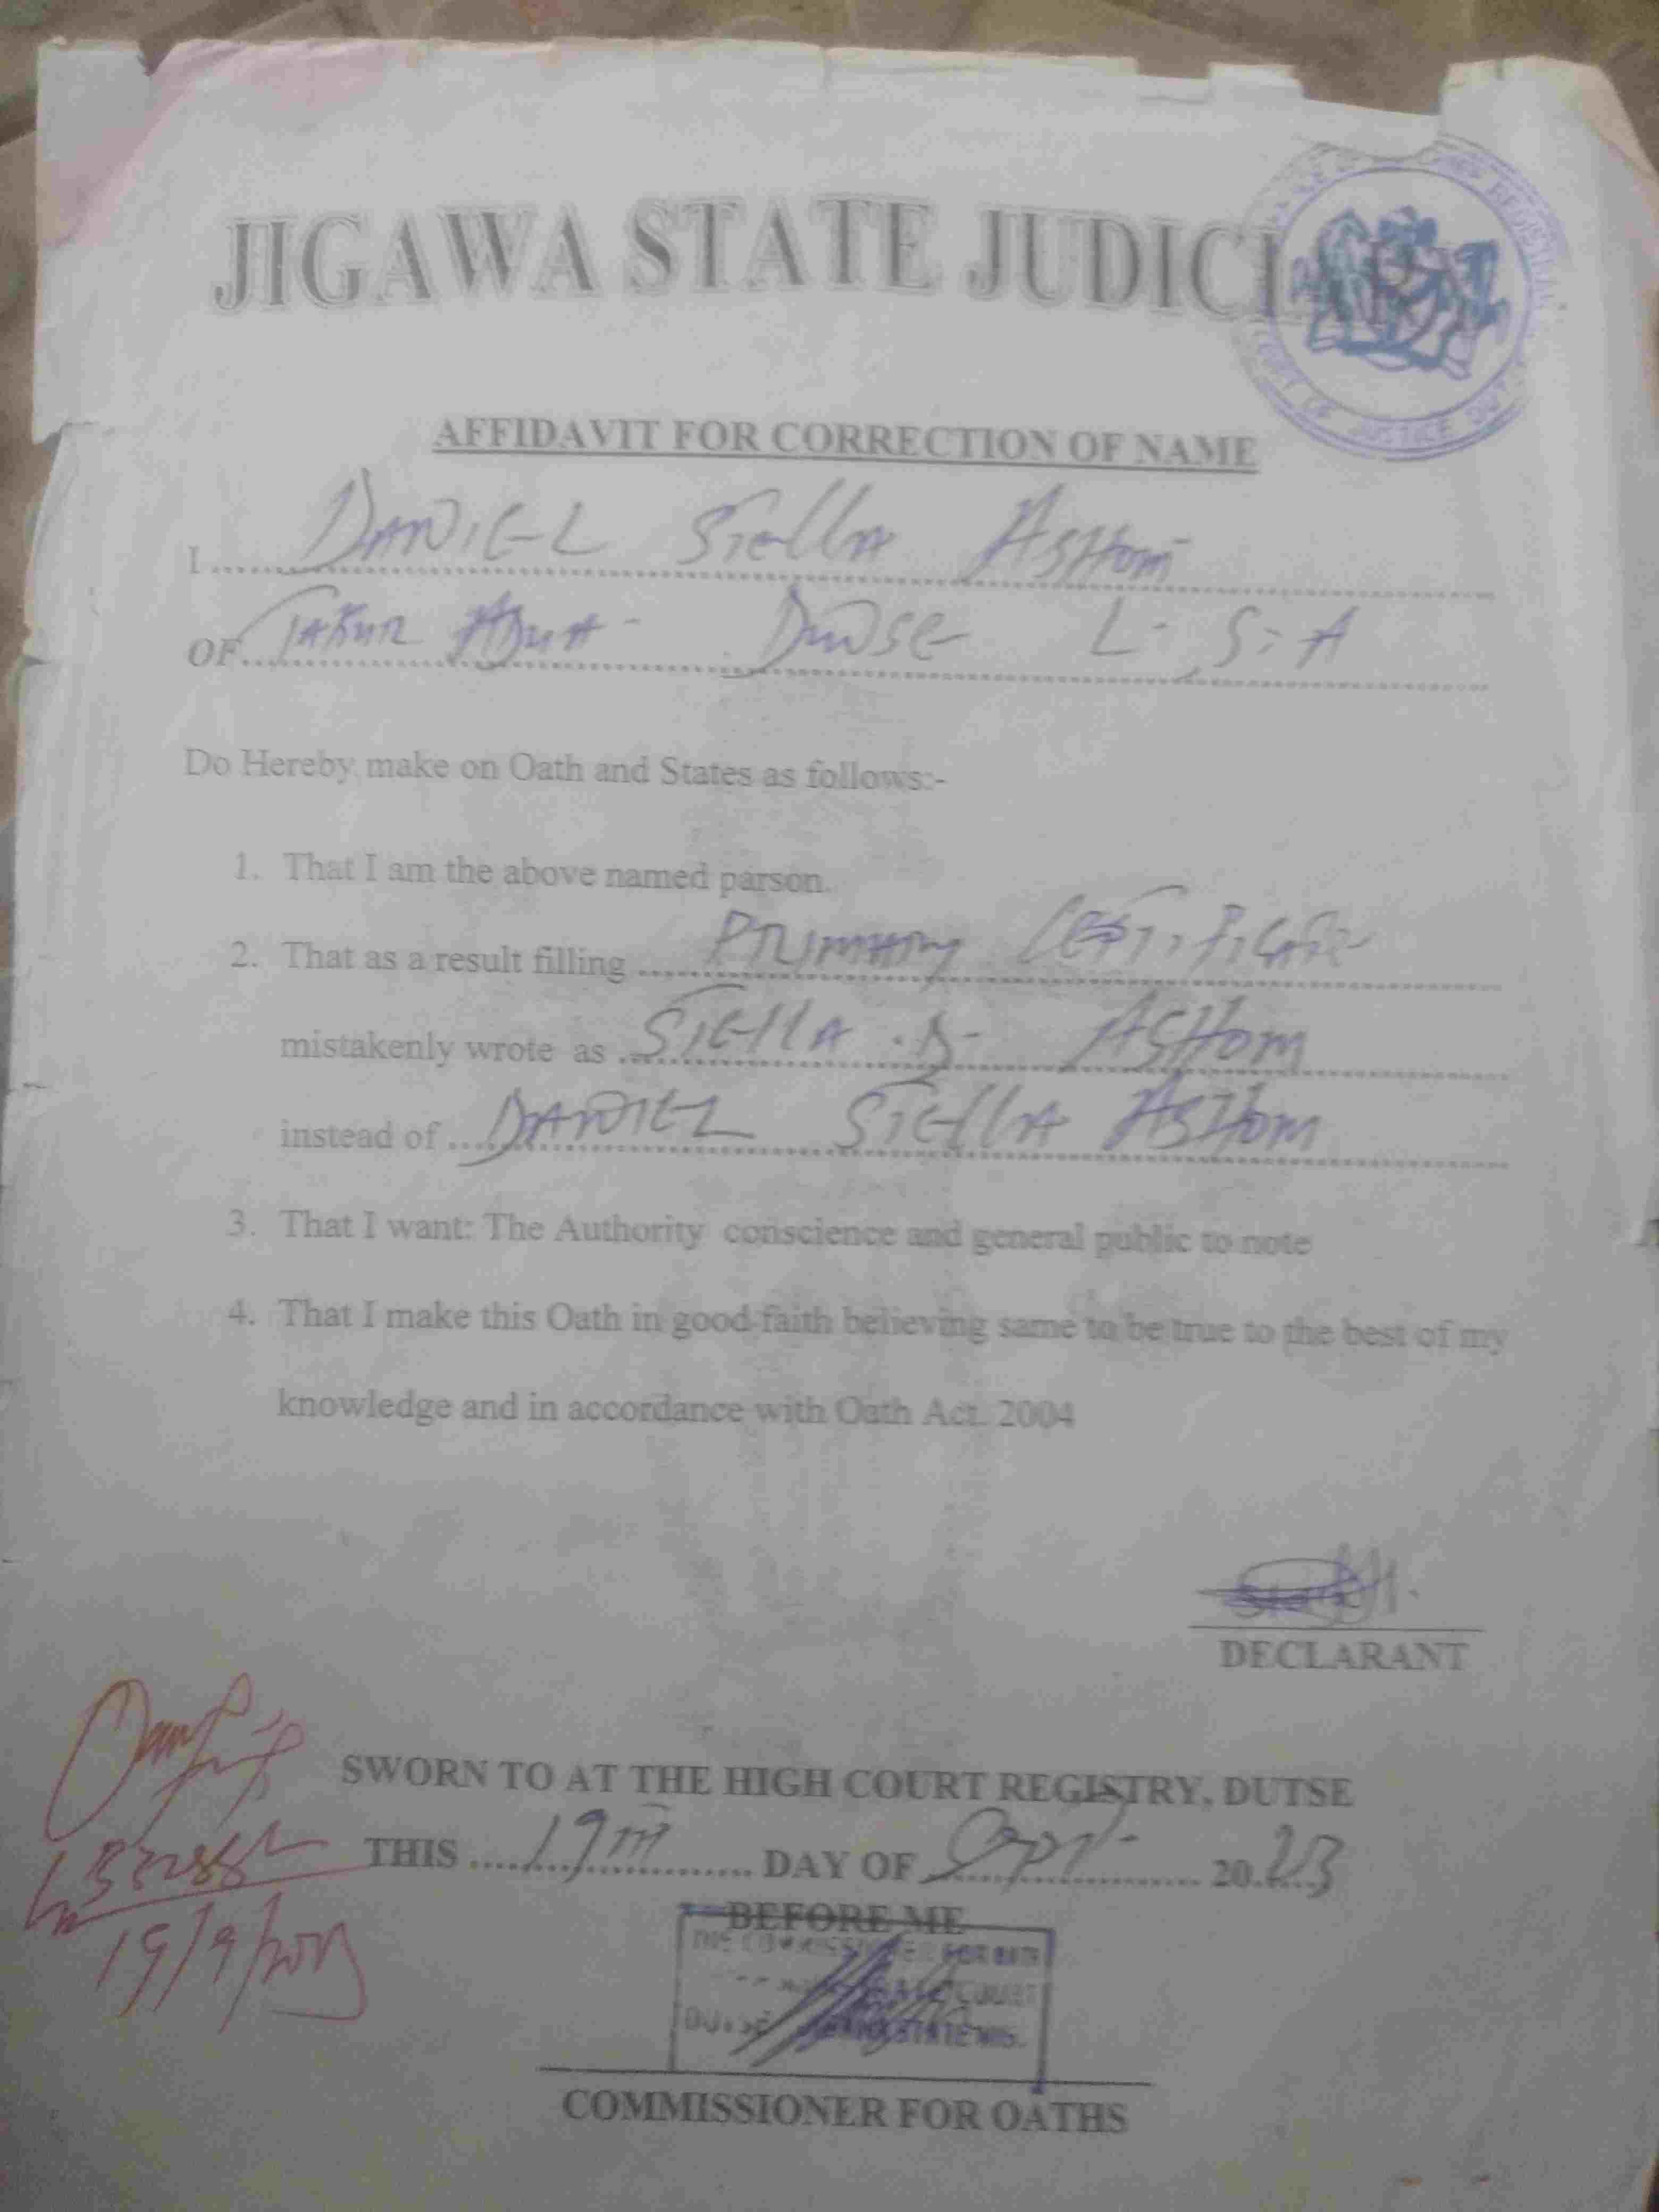 JIGAWA STATE JUDICIARY
AFFIDAVIT FOR CORRECTION OF NAME
I DANIEL Stella ASHOM
OF TAKUR ADUA - DUTSE L.G.A
Do Hereby make on Oath and States as follows:-
1. That I am the above named parson.
2. That as a result filling PRIMARY CERTIFICATE
mistakenly wrote as STELLA .D. ASHOM
instead of DANIEL STELLA ASHOM
3. That I want: The Authority conscience and general public to note
4. That I make this Oath in good faith believing same to be true to the best of my
knowledge and in accordance with Oath Act. 2004
DECLARANT
SWORN TO AT THE HIGH COURT REGISTRY, DUTSE
THIS 19TH DAY OF 2023
19/9/2023
BEFORE ME
COMMISSIONER FOR OATHS